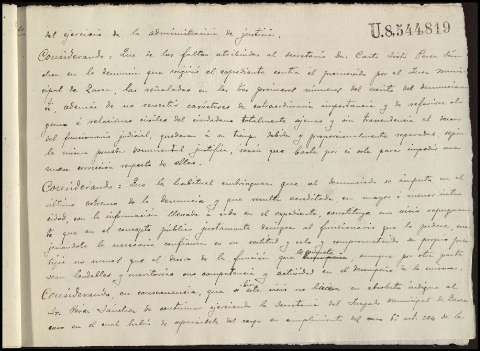 U.8.544.819
del ejercicio de la administración de justicia.
Considerando: Que de las faltas atribuidas al secretario Dn. Carlos Pérez
en la denuncia que originó el expediente contra el promovido por el Juez Muni-
cipal de las señaladas en los tres primeros números del escrito del denunciante
además de no revestir caracteres de extraordinaria importancia y de referirse al-
guna á relaciones civiles del ciudadano totalmente ajenas y sin trascendencia al
del funcionario judicial, quedaron á su tiempo debida y proporcionalmente reparadas, según
la misma prueba documental justifica, razón que basta por sí sola para impedir una
nueva corrección respecto de ellas.
Considerando: Que la habitual embriaguez que al denunciado se imputa en el
último extremo de la denuncia y que resulta acreditada, en mayor ó menor inten-
sidad, con la información llevada á cabo en el expediente, constituye un vicio repugnan-
te que en el concepto público justamente denigra al funcionario que la padece,
la necesaria confianza en su entidad y celo y comprometiendo su propio pres-
tigio no menos que el decoro de la función que aunque por otra parte
sean laudables y meritorias su competencia y actividad en el desempeño de la misma.
Considerando, en consecuencia, que si bien este vicio no hace en absoluto indigno al
Sr. Pérez Sánchez de continuar ejerciendo la Secretaría del Juzgado municipal de
caso en el cual habría de separársele del cargo en cumplimiento del art. de la